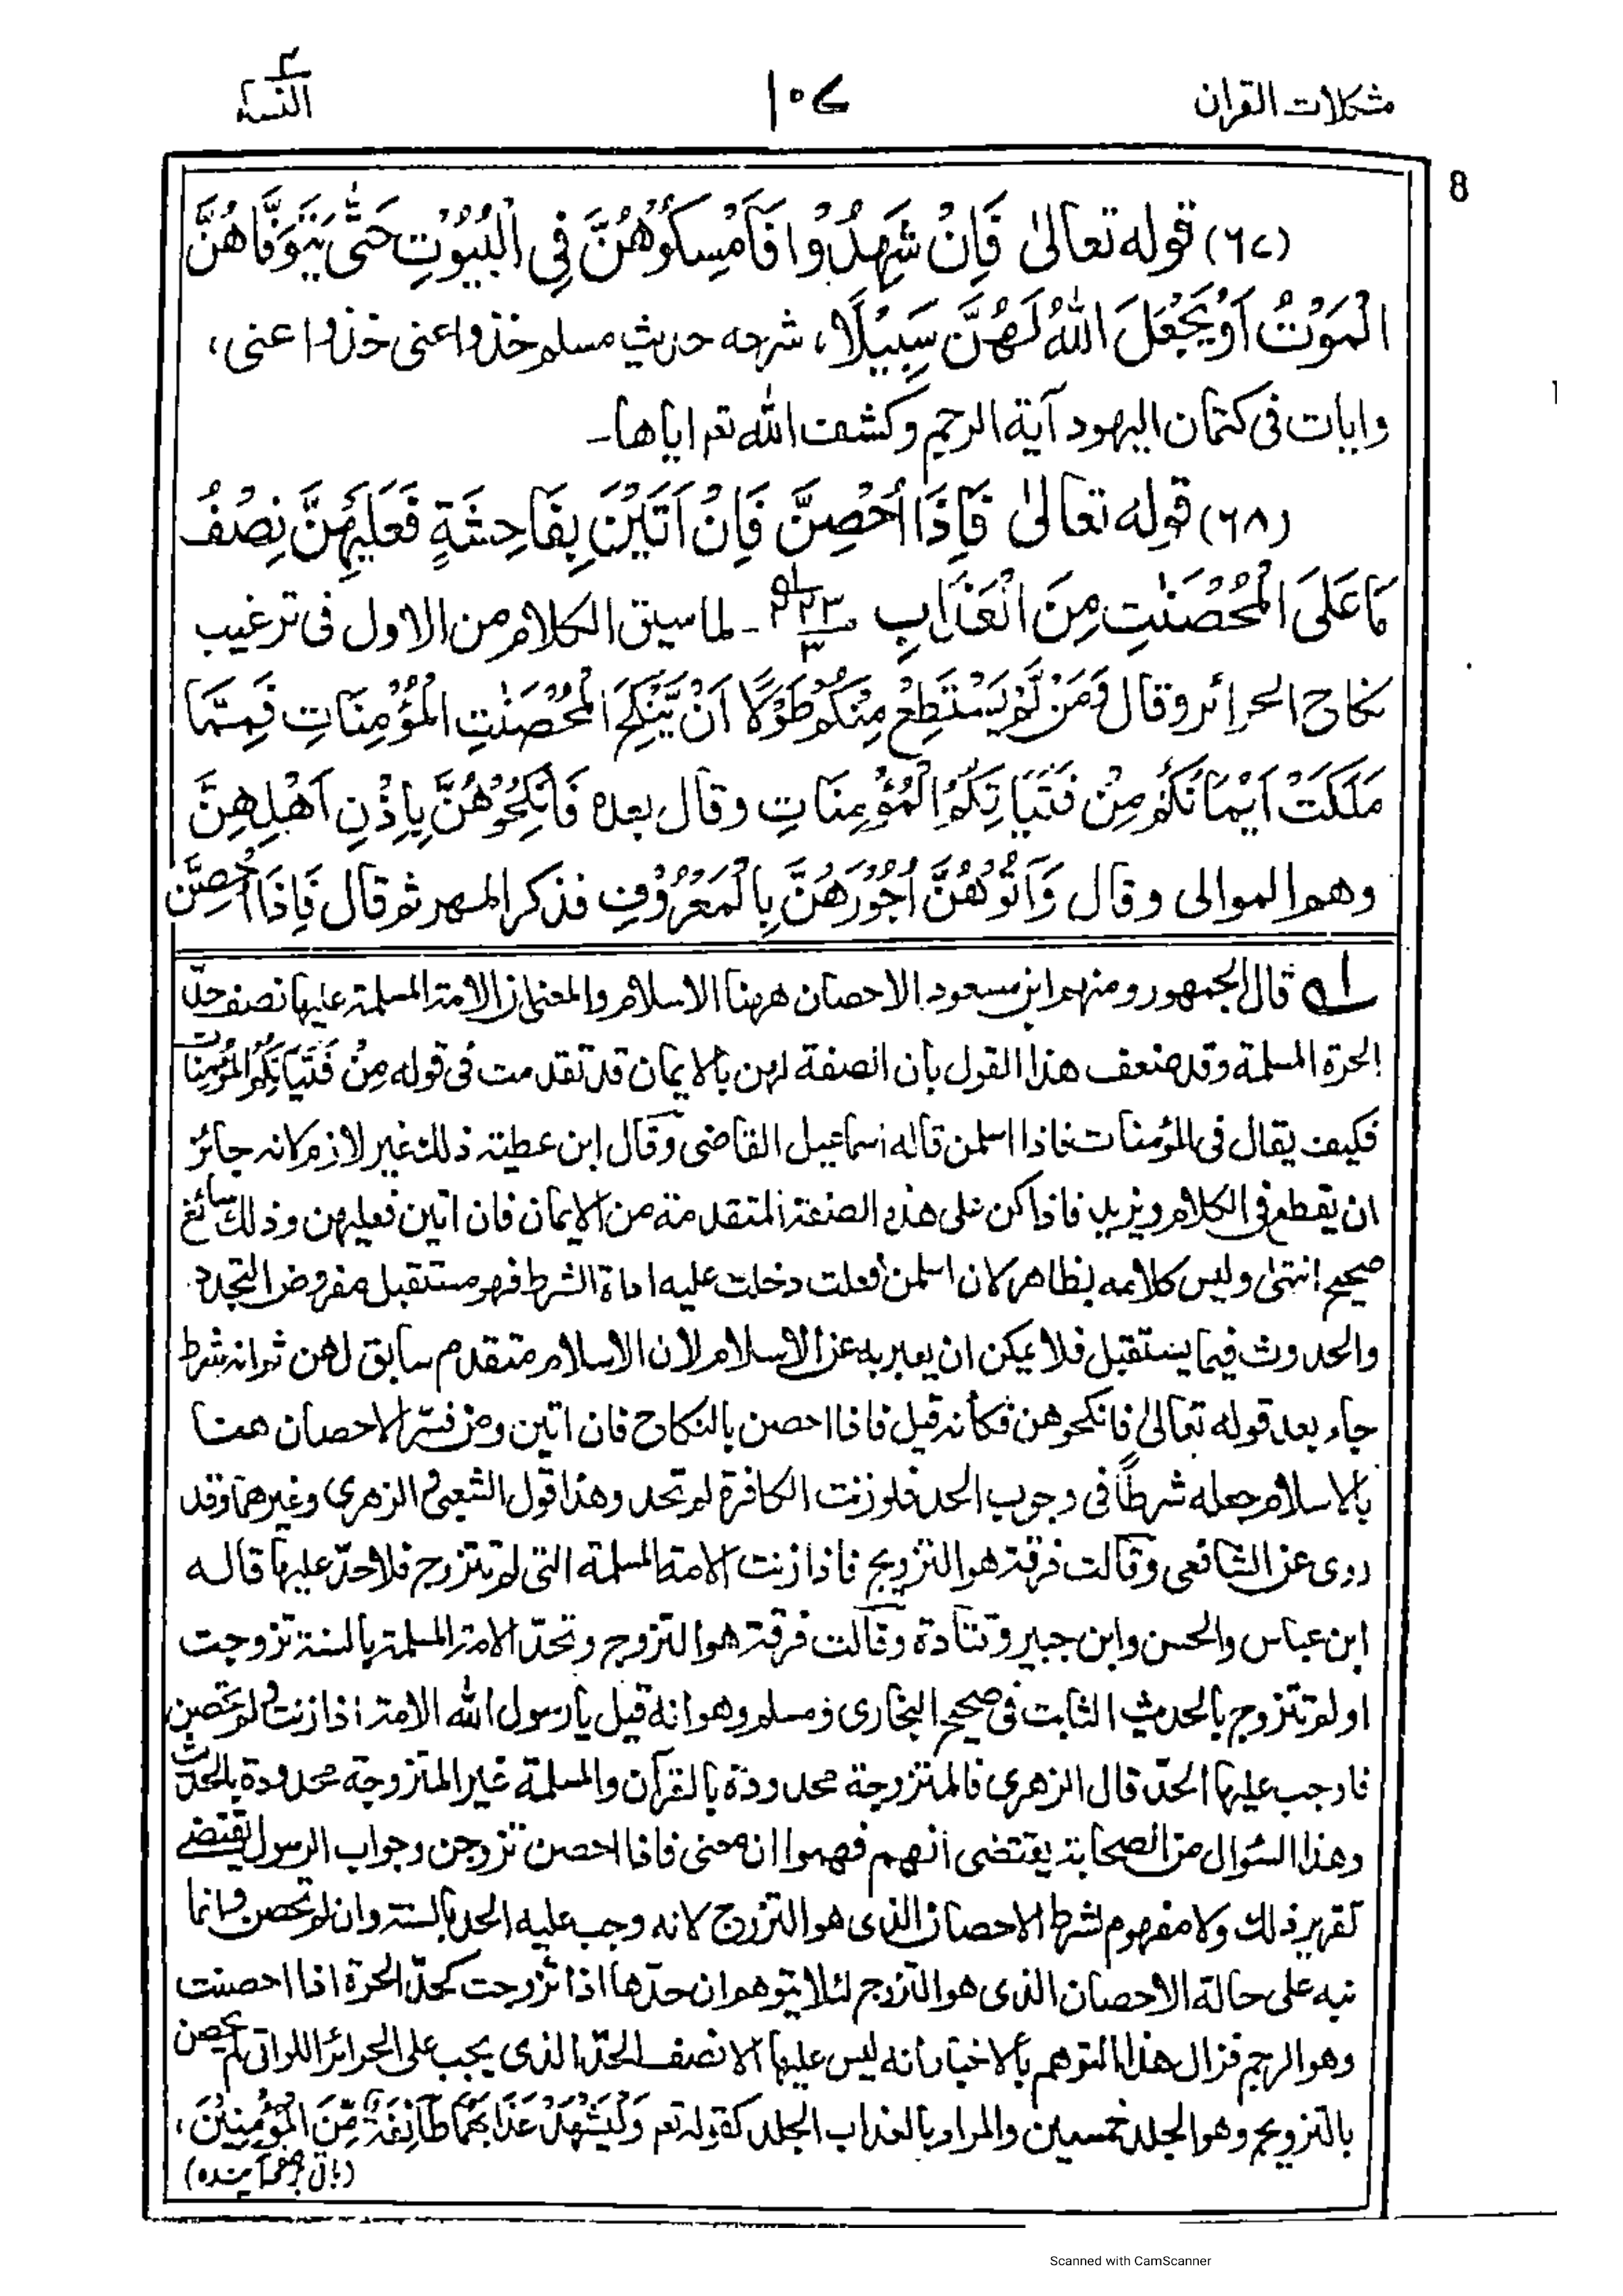 مشكلات القرآن
١٠٧
النساء ٤
8
(٦٧) قوله تعالىٰ فَاِنْ شَهِدُوْا فَاَمْسِكُوْهُنَّ فِي الْبُيُوْتِ حَتّٰى يَتَوَفَّاهُنَّ
الْمَوْتُ اَوْ يَجْعَلَ اللّٰهُ لَهُنَّ سَبِيْلًا، شرحه حديث مسلم خذوا عنى خذوا عنى،
وايات فى كتمان اليهود آية الرجم وكشف الله تعم اياها ـ
(٦٨) قوله تعالىٰ فَاِذَا اُحْصِنَّ فَاِنْ اَتَيْنَ بِفَاحِشَةٍ فَعَلَيْهِنَّ نِصْفُ
مَا عَلَى الْمُحْصَنٰتِ مِنَ الْعَذَابِ ـ لما سيق الكلام من الاول فى ترغيب
نكاح الحرائر وقال وَمَنْ لَّمْ يَسْتَطِعْ مِنْكُمْ طَوْلًا اَنْ يَّنْكِحَ الْمُحْصَنٰتِ الْمُؤْمِنَاتِ فَمِمَّا
مَلَكَتْ اَيْمَانُكُمْ مِنْ فَتَيَاتِكُمُ الْمُؤْمِنَاتِ وقال بعده فَانْكِحُوْهُنَّ بِاِذْنِ اَهْلِهِنَّ
وهم الموالى وقال وَاٰتُوْهُنَّ اُجُوْرَهُنَّ بِالْمَعْرُوْفِ فذكر المهر ثم قال فَاِذَا اُحْصِنَّ
له قال الجمهور ومنهم ابن مسعود الاحصان ههنا الاسلام والمعنى ان الامة المسلمة عليها نصف حدّ
الحرة المسلمة وقد ضعف هذا القول بأن الصفة لهن بالايمان قد تقدمت فى قوله مِنْ فَتَيَاتِكُمُ الْمُؤْمِنَات
فكيف يقال فى المؤمنات فاذا اسلمن قاله اسماعيل القاضى وقال ابن عطية ذلك غير لازم لانه جائز
ان يقطع فى الكلام ويزيد فاذا كن على هذه الصفة المتقدمة من الايمان فان اتين فعليهن وذلك سائغ
صحيح انتهىٰ وليس كلامه بظاهر لان اسلمن فعلت دخلت عليه اداة الشرط فهو مستقبل مفروض التجدد
والحدوث فيما يستقبل فلا يمكن ان يعبر به عن الاسلام لان الاسلام متقدم سابق لهن ثم انه شرط
جاء بعد قوله تعالىٰ فانكحوهن فكأنه قيل فاذا احصن بالنكاح فان اتين ومن فسّر الاحصان هنا
بالاسلام جعله شرطاً فى وجوب الحد فلو زنت الكافرة لم تحد وهذا قول الشعبى والزهرى وغيرهما وقد
روى عن الشافعى وقالت فرقة هو التزويج فاذا زنت الامة المسلمة التى لم تتزوج فلا حدّ عليها قاله
ابن عباس والحسن وابن جبير وقتادة وقالت فرقة هو التزوج وتحدّ الامة المسلمة بالسنة تزوجت
او لم تتزوج بالحديث الثابت فى صحيح البخارى ومسلم وهو انه قيل يا رسول الله الامة اذا زنت ولم تحصن
فاوجب عليها الحدّ قال الزهرى فالمتزوجة محدودة بالقرآن والمسلمة غير المتزوجة محدودة بالحديث
وهذا السؤال من الصحابة يقتضى انهم فهموا ان معنى فاذا احصن تزوجن وجواب الرسول يقتضى
تقرير ذلك ولا مفهوم لشرط الاحصان الذى هو التزوج لانه وجب عليه الحد بالسنة وان لم تحصن وانما
نبه على حالة الاحصان الذى هو التزوج لئلا يتوهم ان حدّها اذا تزوجت كحدّ الحرة اذا احصنت
وهو الرجم فزال هذا التوهم بالاخبار انه ليس عليها الا نصف الحدّ الذى يجب على الحرائر اللواتى لم يحصن
بالتزويج وهو الجلد خمسين والمراد بالعذاب الجلد كقوله تعم وَلْيَشْهَدْ عَذَابَهُمَا طَائِفَةٌ مِّنَ الْمُؤْمِنِيْنَ،
(باقى بر صفحہ آيندہ)
Scanned with CamScanner